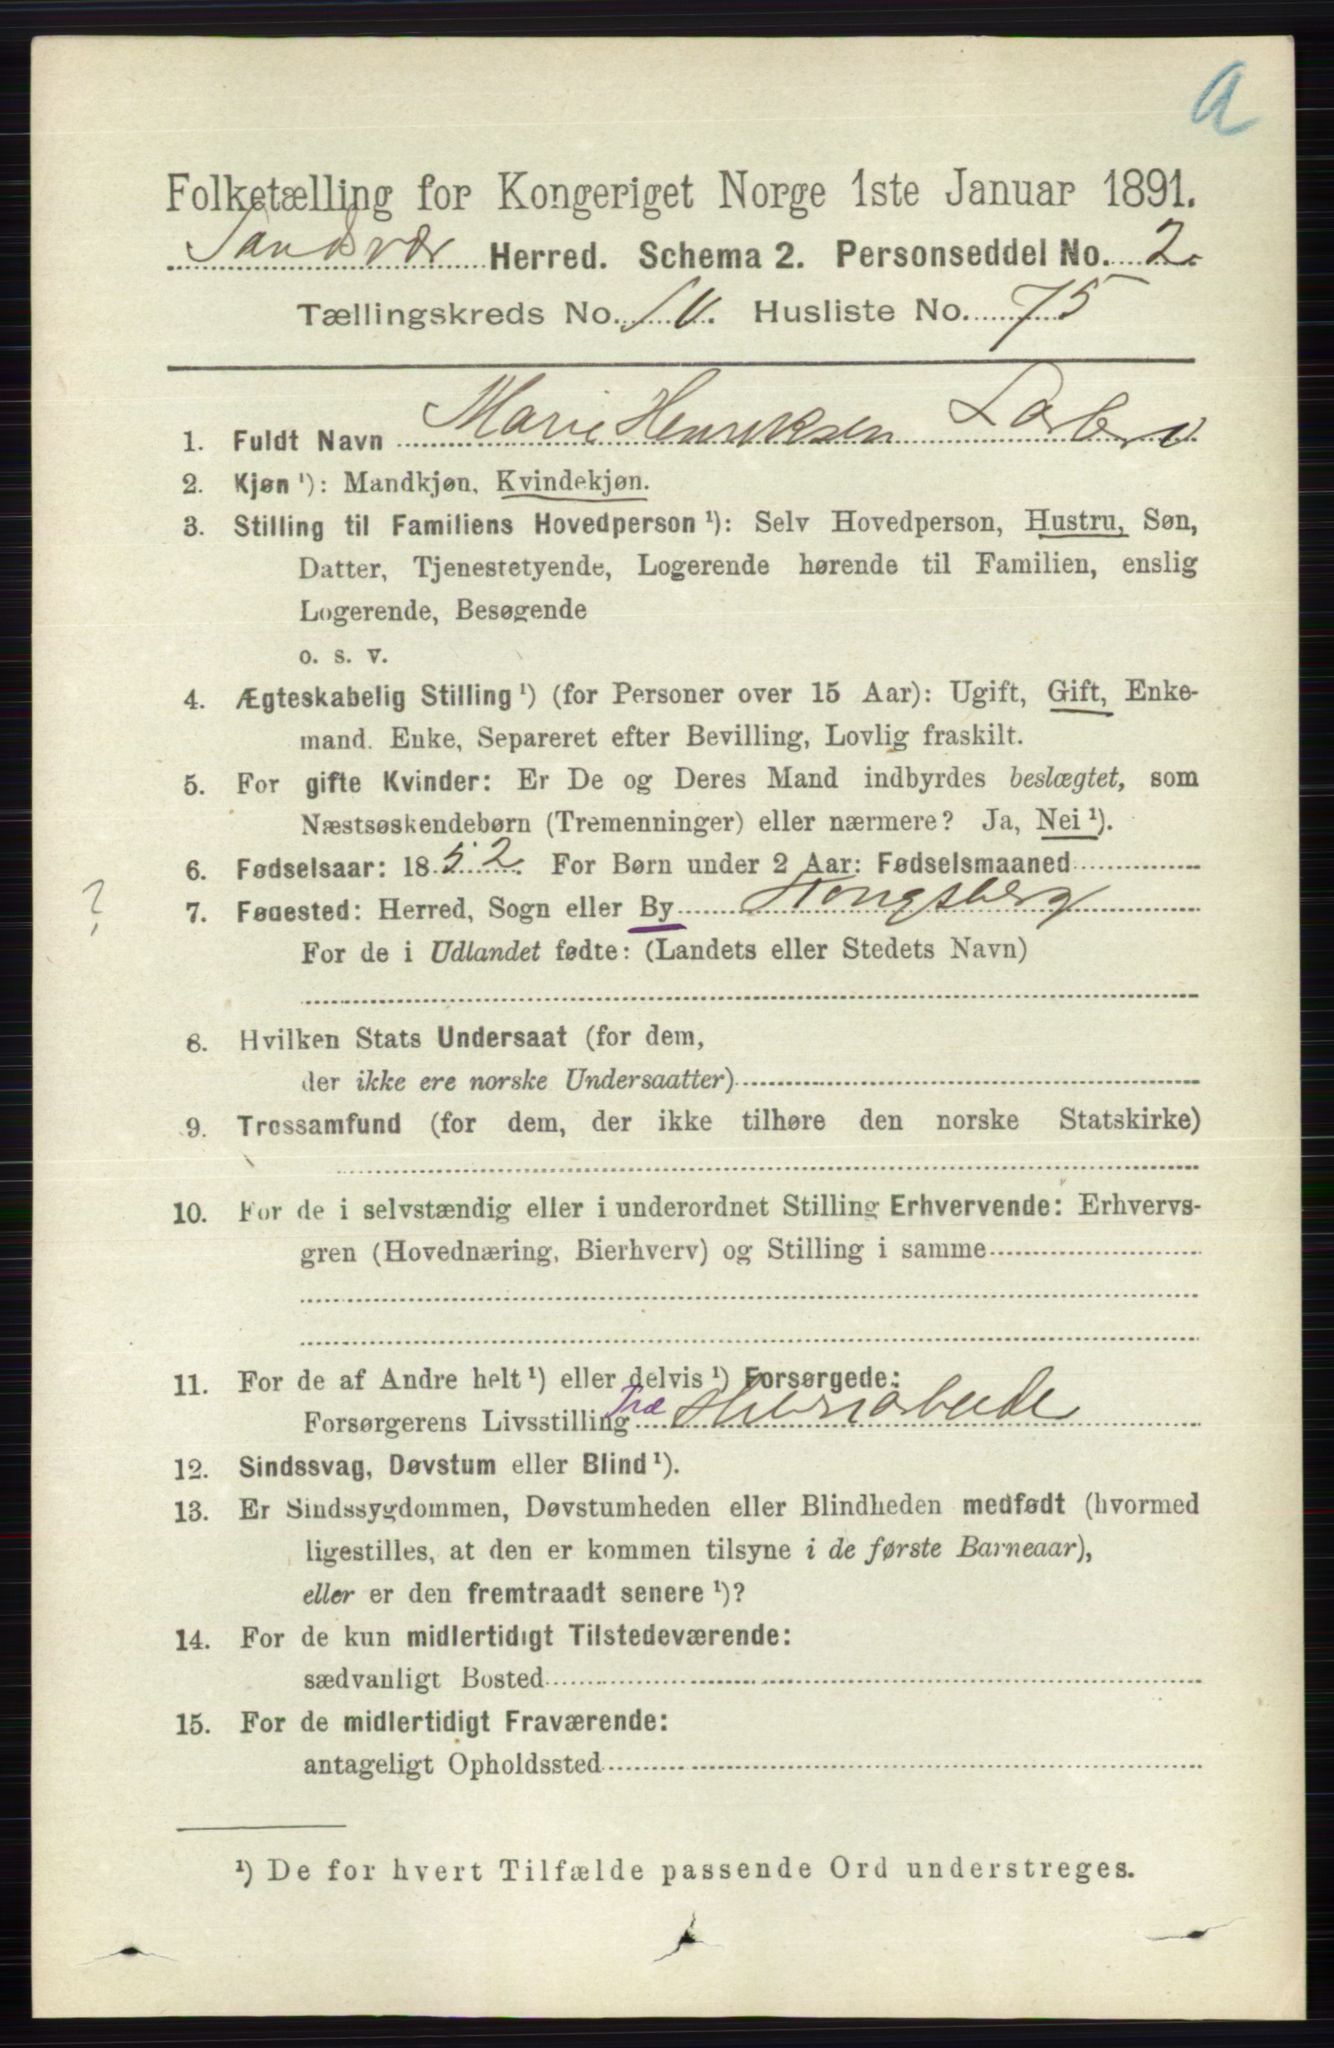 a
Folketælling for Kongeriget Norge 1ste Januar 1891.
Sandsvær Herred. Schema 2. Personseddel No. 2.
Tællingskreds No. IV. Husliste No. 75
1. Fuldt Navn Marie Henriksen
2. Kjøn ¹): Mandkjøn, Kvindekjøn.
3. Stilling til Familiens Hovedperson ¹): Selv Hovedperson, Hustru, Søn,
Datter, Tjenestetyende, Logerende hørende til Familien, enslig
Logerende, Besøgende
o. s. v.
4. Ægteskabelig Stilling ¹) (for Personer over 15 Aar): Ugift, Gift, Enke-
mand. Enke, Separeret efter Bevilling, Lovlig fraskilt.
5. For gifte Kvinder: Er De og Deres Mand indbyrdes beslægtet, som
Næstsøskendebørn (Tremenninger) eller nærmere? Ja, Nei ¹).
6. Fødselsaar: 1852. For Børn under 2 Aar: Fødselsmaaned
?
7. Fødested: Herred, Sogn eller By Kongsberg
For de i Udlandet fødte: (Landets eller Stedets Navn)
8. Hvilken Stats Undersaat (for dem,
der ikke ere norske Undersaatter)
9. Trossamfund (for dem, der ikke tilhøre den norske Statskirke)
10. For de i selvstændig eller i underordnet Stilling Erhvervende: Erhvervs-
gren (Hovednæring, Bierhverv) og Stilling i samme
11. For de af Andre helt ¹) eller delvis ¹) Forsørgede:
Forsørgerens Livsstilling Træ
12. Sindssvag, Døvstum eller Blind ¹).
13. Er Sindssygdommen, Døvstumheden eller Blindheden medfødt (hvormed
ligestilles, at den er kommen tilsyne i de første Barneaar),
eller er den fremtraadt senere ¹)?
14. For de kun midlertidigt Tilstedeværende:
sædvanligt Bosted
15. For de midlertidigt Fraværende:
antageligt Opholdssted
¹) De for hvert Tilfælde passende Ord understreges.